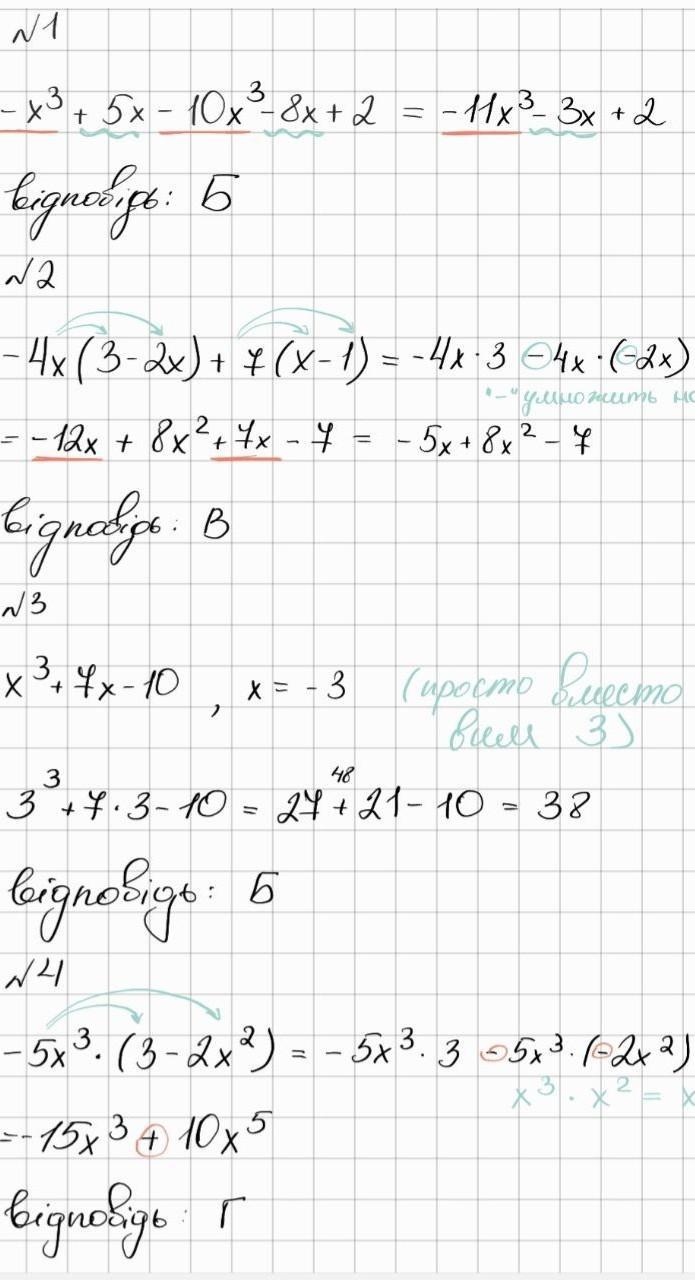 №1
-x³ + 5x - 10x³ - 8x + 2 = -11x³ - 3x + 2
відповідь: Б
№2
-4x(3-2x) + 7(x-1) = -4x·3 - 4x·(-2x)
"-" умножить на
= -12x + 8x² + 7x - 7 = -5x + 8x² - 7
відповідь: В
№3
x³ + 7x - 10 , x = -3 (просто вместо
48
3³ + 7·3 - 10 = 27 + 21 - 10 = 38
відповідь: Б
№4
-5x³·(3-2x²) = -5x³·3 - 5x³·(-2x²)
x³·x² = x
= -15x³ + 10x⁵
відповідь: Г